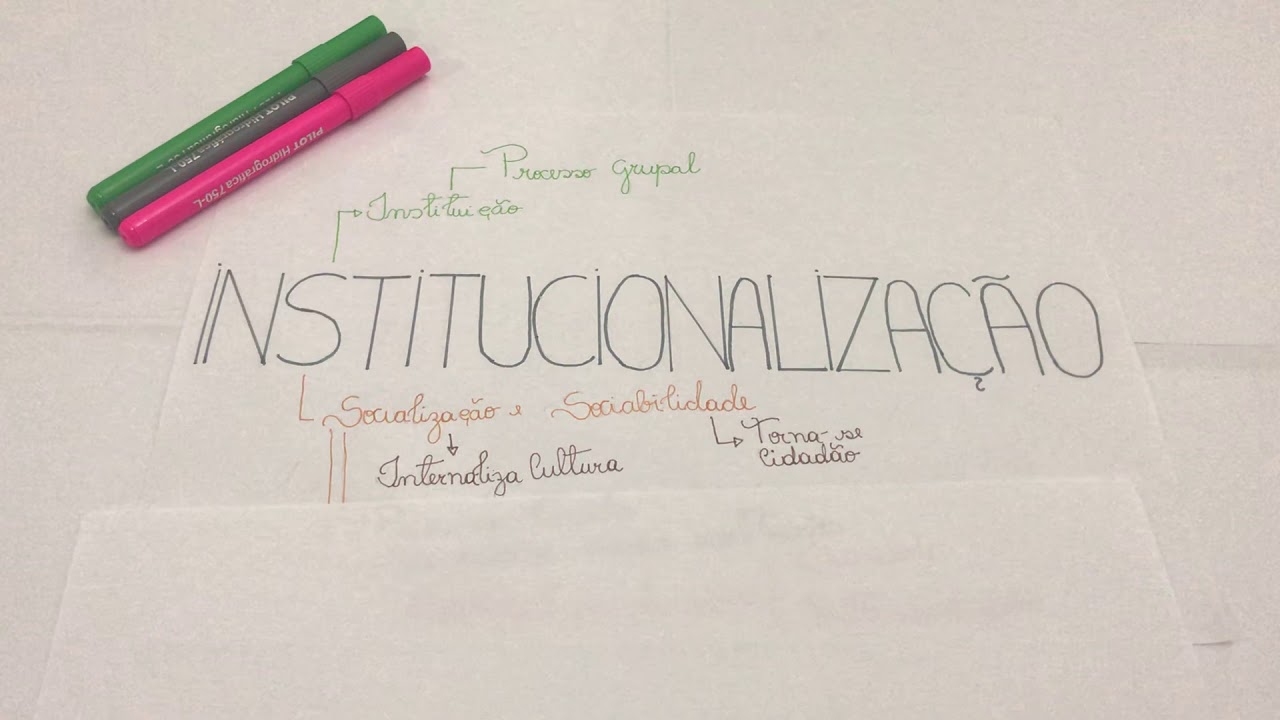 PILOT Hidrográfica 750-L
Processo grupal
Instituição
INSTITUCIONALIZAÇÃO
Socialização e Sociabilidade
Torna-se
Cidadão
Internaliza Cultura